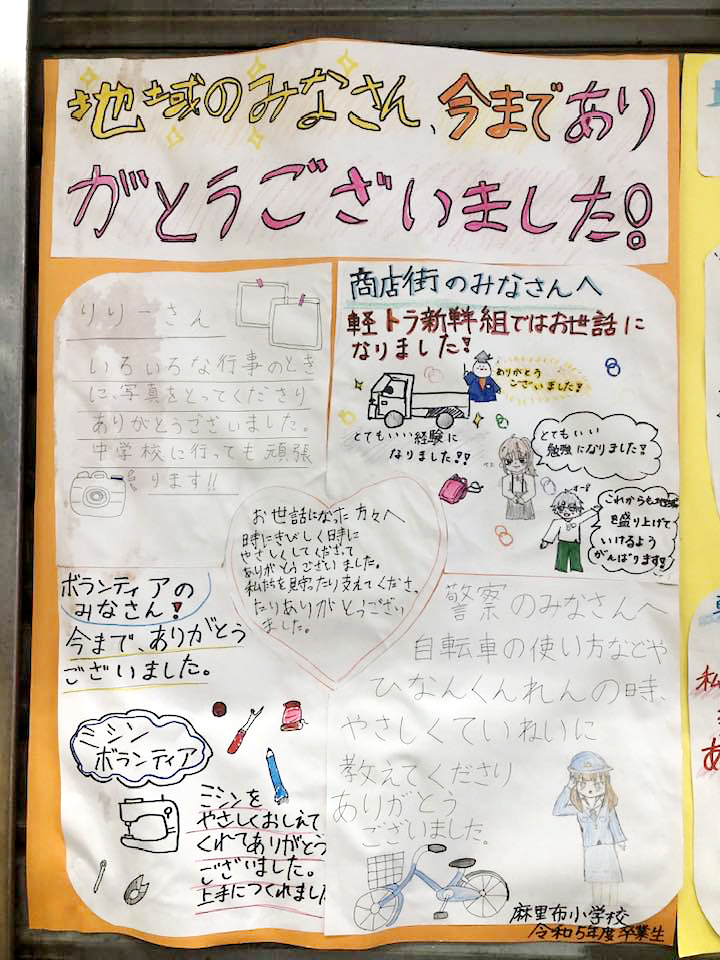 地域のみなさん、今まであり
がとうございました!
りりーさん
いろいろな行事のとき
に、写真をとってくださり
ありがとうございました。
中学校に行っても頑張
ります!!
商店街のみなさんへ
軽トラ新幹組ではお世話に
なりました!
ありがとう
ございました!
とてもいい経験に
なりました!!
とてもいい
勉強になりました!
これからも地域
を盛り上げて
いけるよう
がんばります!
お世話になった方々へ
時にきびしく時に
やさしくしてくださって
ありがとうございました。
私たちを見守ったり支えてくださっ
たりありがとうござい
ました。
ボランティアの
みなさん!
今まで、ありがとう
ございました。
ミシン
ボランティア
ミシンを
やさしくおしえて
くれてありがとう
ございました。
上手につくれました
警察のみなさんへ
自転車の使い方などや
ひなんくんれんの時、
やさしくていねいに
教えてくださり
ありがとう
ございました。
麻里布小学校
令和5年度卒業生